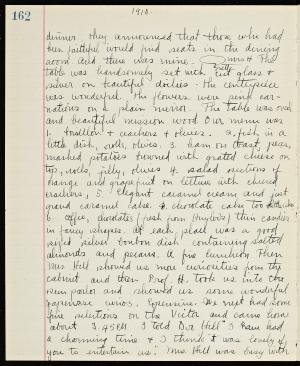 162
1918.
dinner they announced that those who had
been faithful would find seats in the dining
room and there was mine. The
table was handsomely set with cut glass &
silver on beautiful doilies. The centerpiece
was wonderful. The flowers were pink car-
nations on a plain mirror. The table was oval
and beautiful mission wood. Our menu was
1. bouillon & crackers & olives. 2. fish in a
little dish, rolls, olives. 3. ham on toast, peas,
mashed potatoes browned with grated cheese on
top, rolls, jelly, olives 4. salad sections of
orange and grapefruit on lettuce with cheesed
crackers, 5. elegant caramel cream and just
grand caramel cake & chocolate cake, too
6. coffee, chocolates fresh from Huyler's, thin candies
in fancy shapes. At each place was a good
sized silver bonbon dish containing salted
almonds and pecans. A fine luncheon. Then
Mrs Hill showed us more curiosities from the
cabinet and then Prof. H. took us into the
sun parlor and showed us some wonderful
curios. Expensive. We next had some
fine selections on the Victor and came home
about 3.45 P.M. I told Dr. Hill "I have had
a charming time & I think it was lovely of
you to entertain us." Mrs Hill was busy with